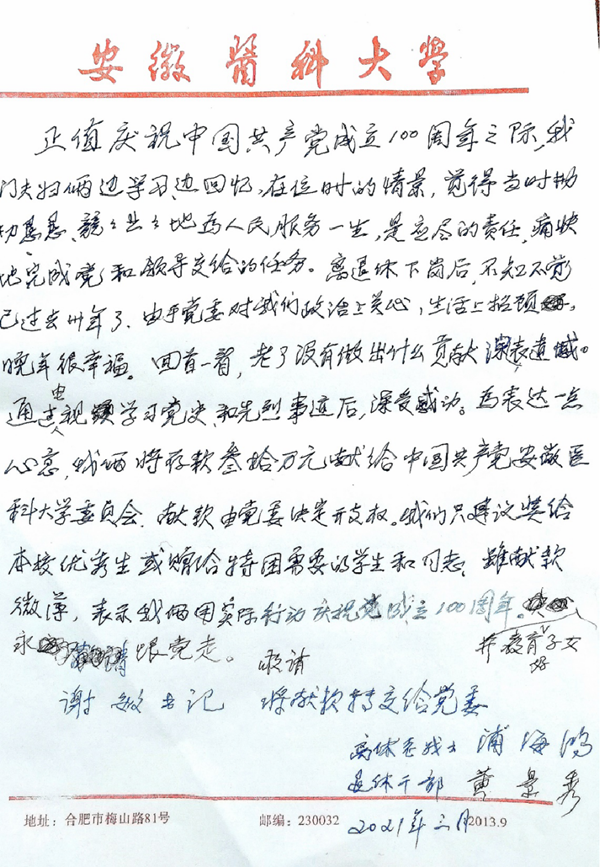 安徽医科大学
正值庆祝中国共产党成立100周年之际,我
门夫妇俩边学习、边回忆,在位时的情景,觉得当时勤
勤恳恳、兢兢业业地为人民服务一生,是应尽的责任,痛快
地完成党和领导交给的任务。离退休下岗后,不知不觉
已过去卅年了.由于党委对我们政治上关心,生活上招顾
晚年很幸福。回首一看,老了没有做出什么贡献深表遗憾。
通过电视学习党史、和先烈事迹后,深受感动。为表达一点
心意,我俩将存款叁拾万元献给中国共产党安徽医
科大学委员会.献款由党委决定开支权。我们只建议奖给
本校优秀生或赠给特困需要的学生和同志.虽献款
微薄,表示我俩用实际行动庆祝党成立100周年。
永跟党走。 敬请 并教育好子女
谢 书记 将献款转交给党委
离休老战士 浦海鸿
退休干部 黄景秀
2021年三月
地址:合肥市梅山路81号 邮编:230032 2013.9